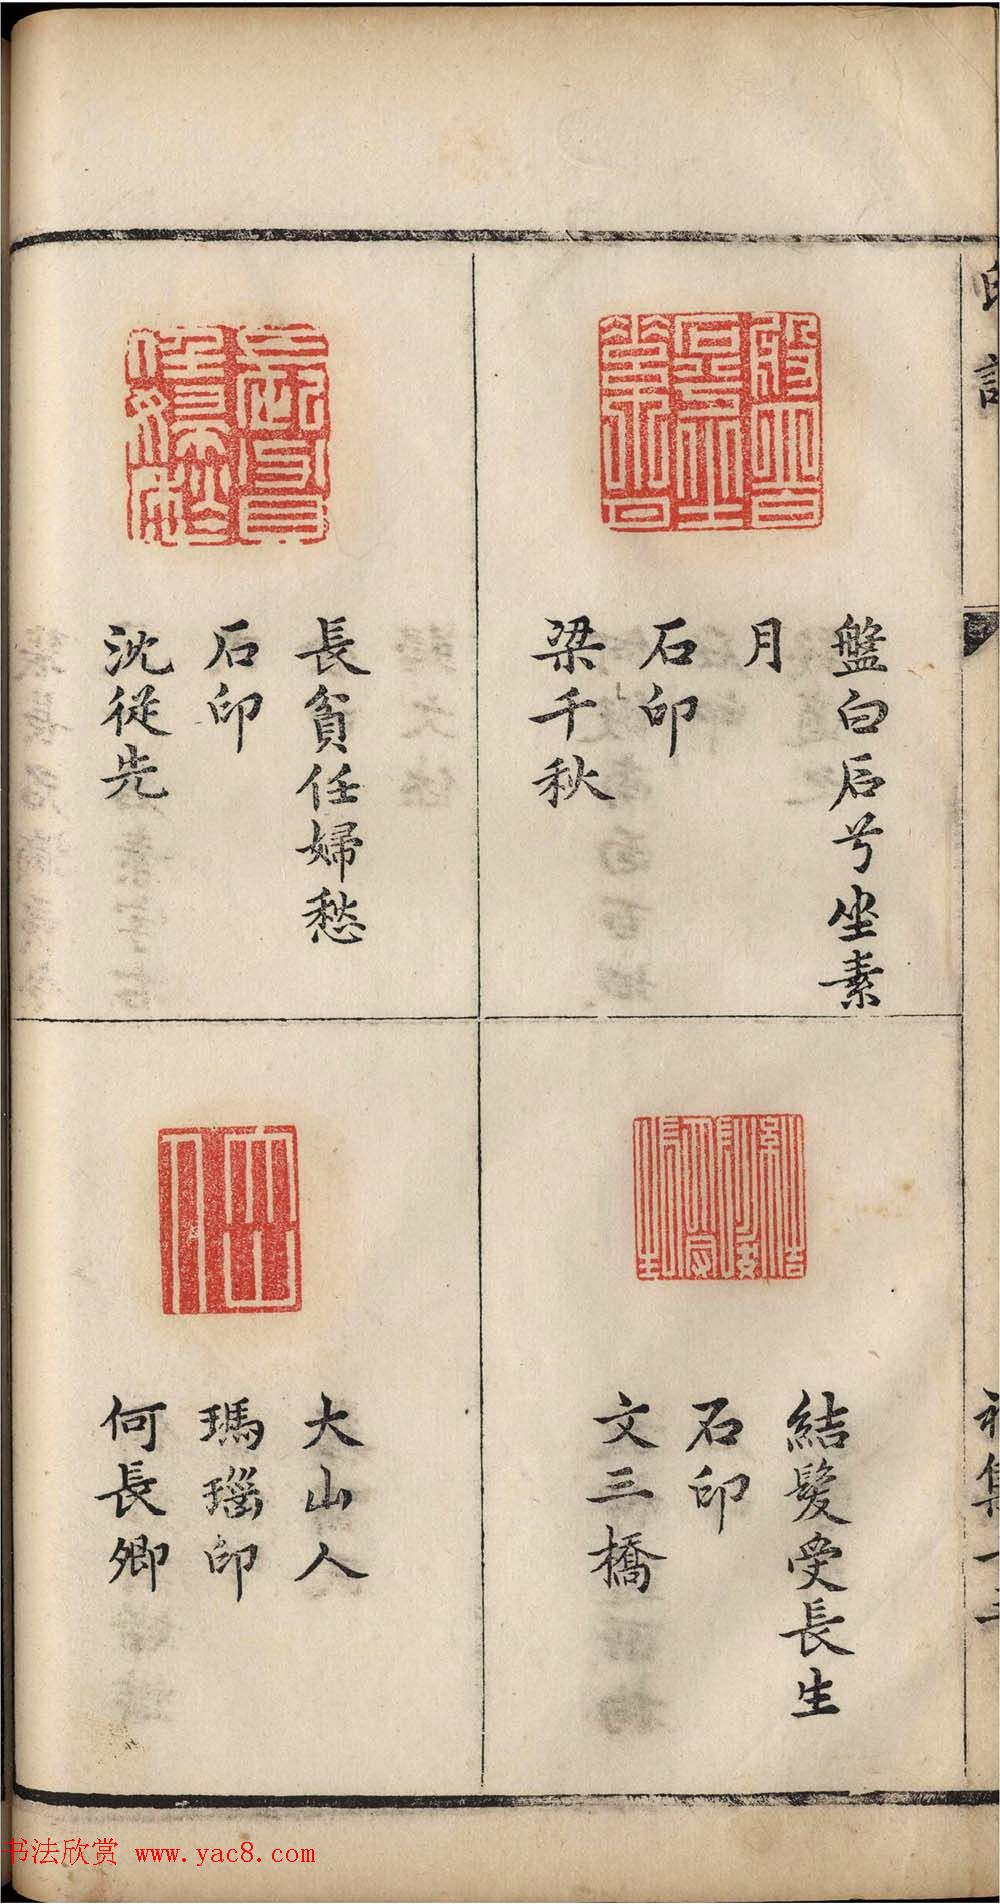 盤白石兮坐素
月
石印
梁千秋
結髮受長生
石印
文三橋
長貧任婦愁
石印
沈從先
大山人
瑪瑙印
何長卿
书法欣赏 www.yac8.com